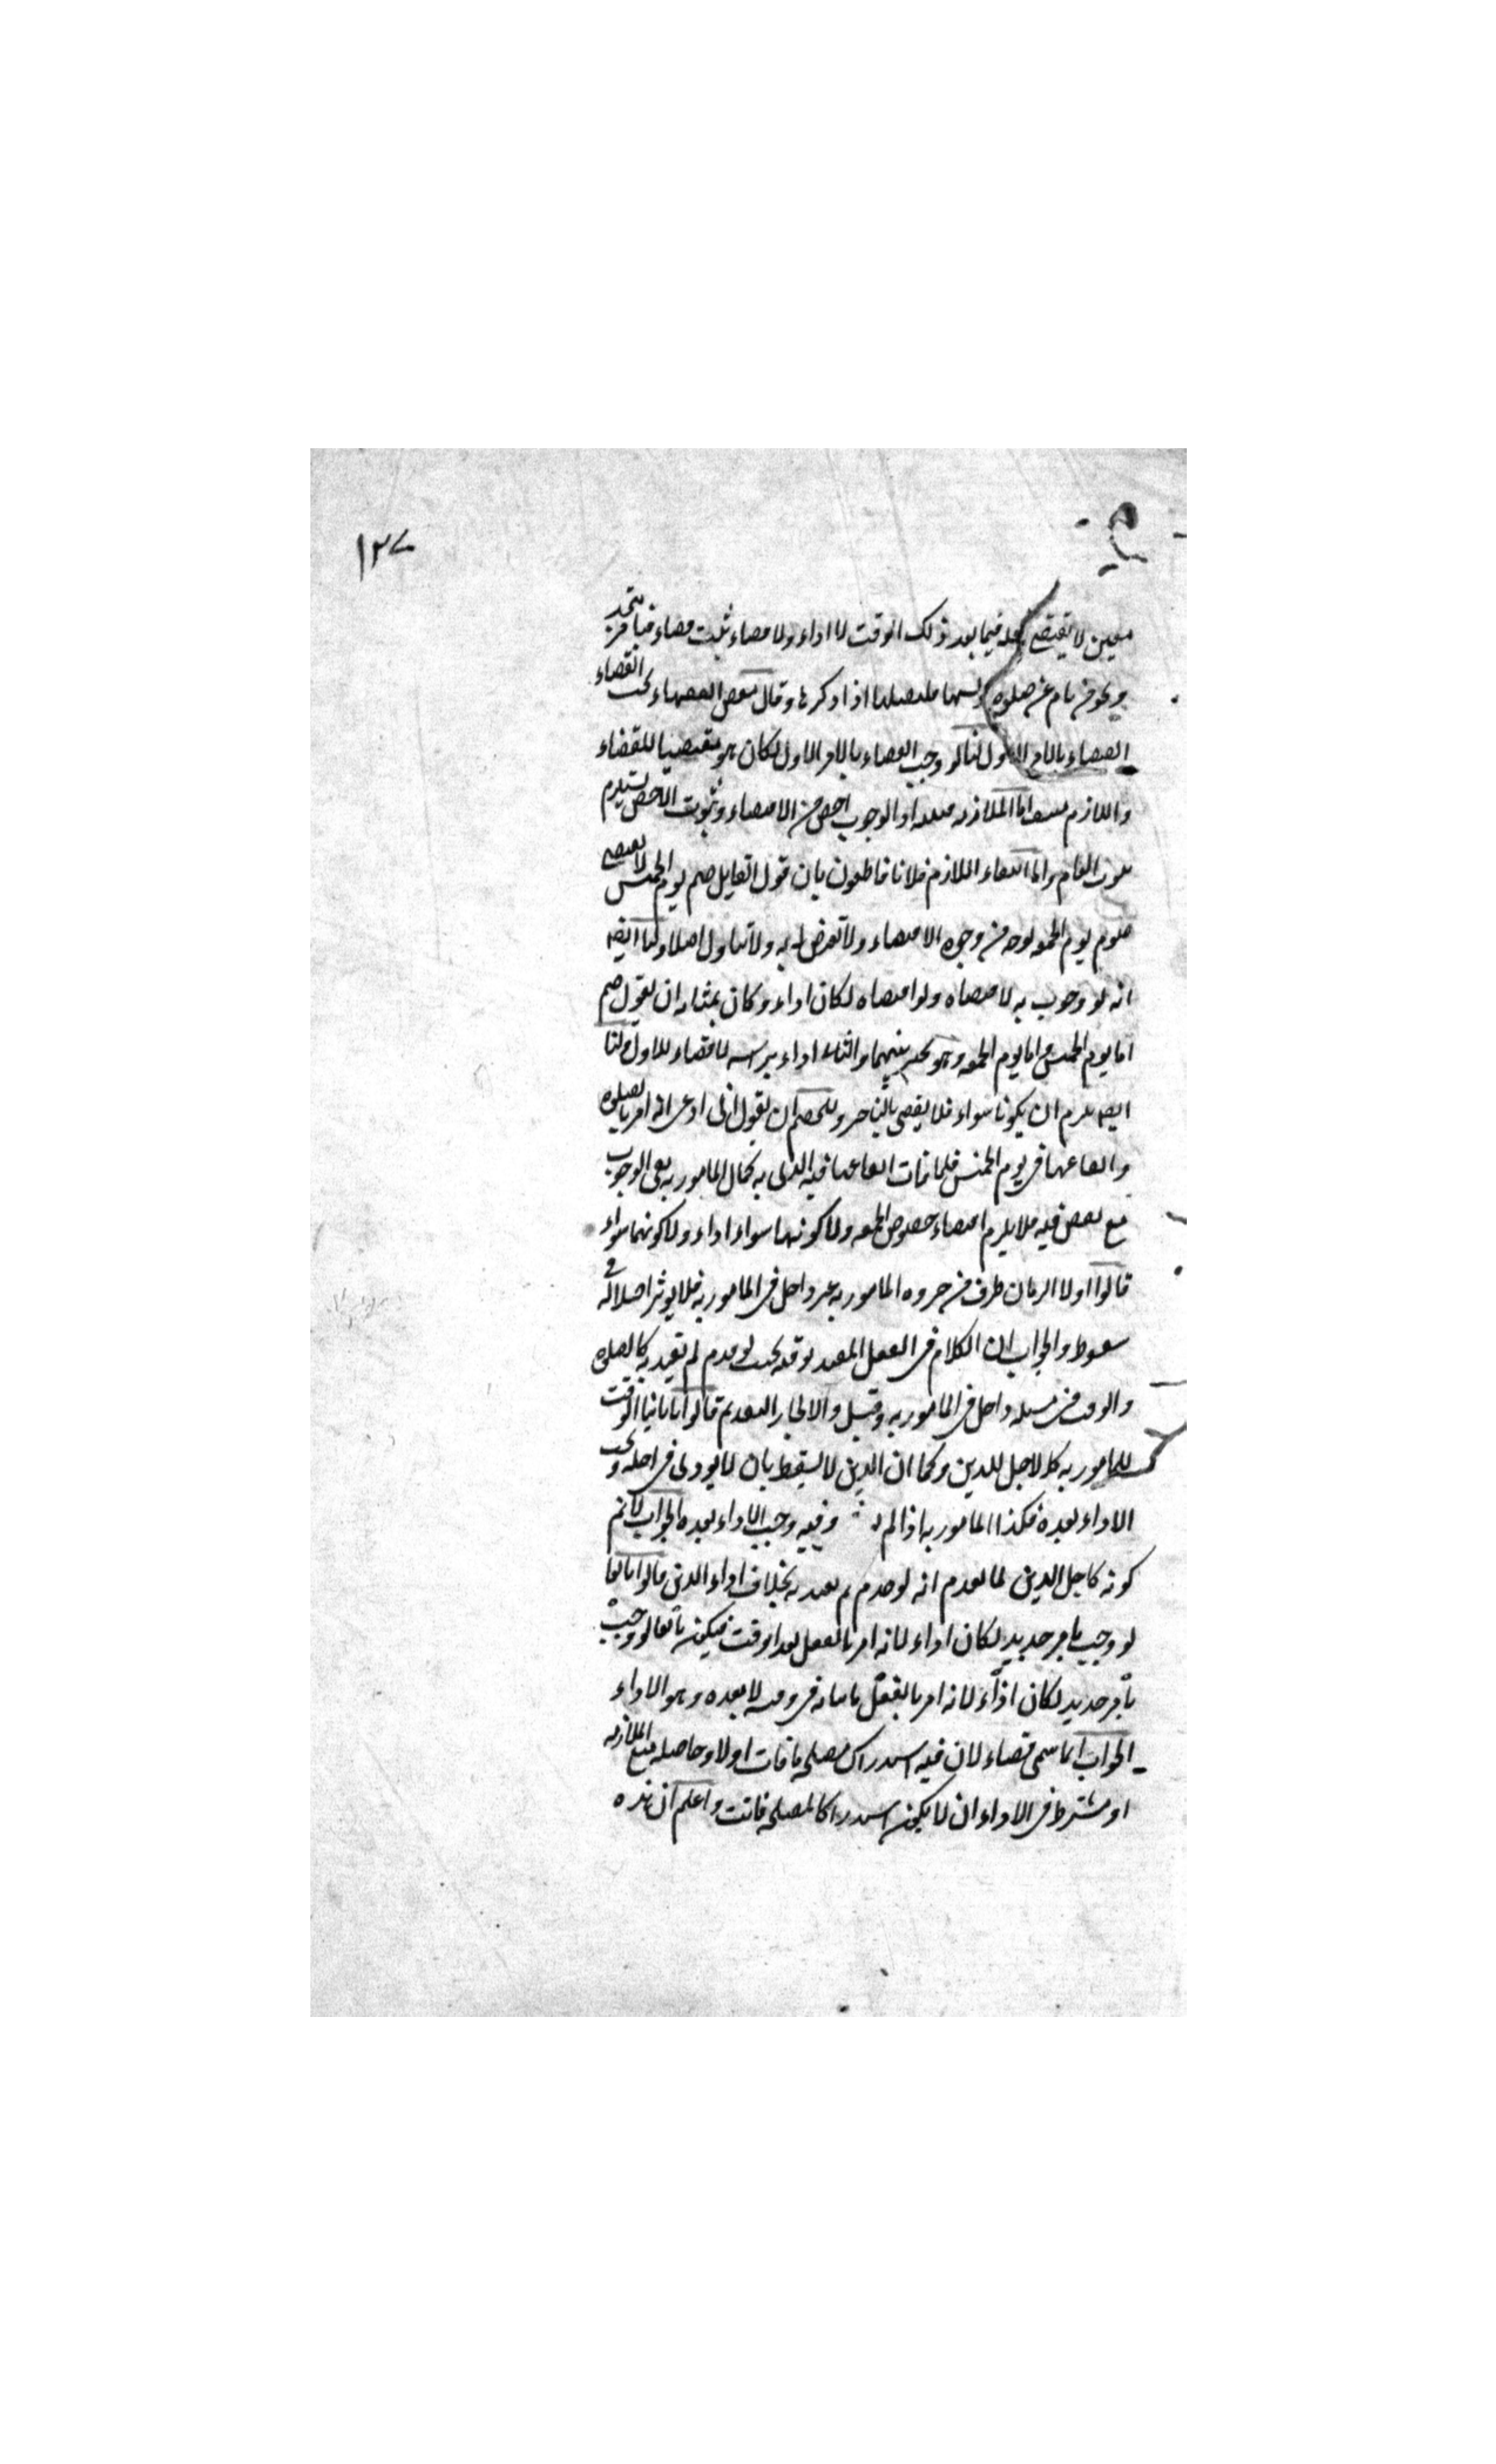 ١٢٧
معين لا يقتضي فعله فيما بعد ذلك الوقت لا اداء ولا قضاء ثبت قضاء فبامر متجدد
ونحو من نام عن صلوة او نسيها فليصلها اذا ذكرها وقال بعض الفقهاء يجب القضاء
القضاء بالامر الاول لنا لو وجب القضاء بالامر الاول لكان هو مقتضيا للقضاء
واللازم منتف اما الملازمة اذ الوجوب اخص من الاقتضاء وثبوت الاخص يستلزم
ثبوت العام واما انتفاء اللازم فلانا قاطعون بان قول القايل صم يوم الخميس لا يقتضي
صوم يوم الجمعه بوجه من وجوه الاقتضاء ولا تعرض له به ولا تناول اصلا ولنا ايضا
انه لو وجب به لاقتضاه ولو اقتضاه لكان اداء وكان بمثابه ان يقول صم
اما يوم الخميس واما يوم الجمعه وهو تخيير بينهما والثاني اداء براسه لا قضاء للاول ولنا
ايضا يلزم ان يكونا سواء فلا يقضي بالتاخير وللخصم ان يقول اني ادعى انه امر بالصلوة
وايقاعها في يوم الخميس فلما فات ايقاعها فيه الذي به كمال المامور به بقي الوجوب
مع نقص فيه فلا يلزم اقتضاء خصوص الجمعه ولا كونها سواء اداء ولا كونهما سواء
قالوا اولا الزمان ظرف من ضروره المامور به غير داخل في المامور به فلا يوثر اختلاله في
سقوطه والجواب ان الكلام في الفعل المقيد بوقته بحيث لو قدم لم يعتد به كالصلوة
والوقت في مسئله داخل في المامور به وقيل والا لجاز التقديم قالوا ثانيا الوقت
للمامور به كالاجل للدين وكما ان الدين لا يسقط بان لا يودى في اجله ويجب
الاداء بعده فكذا المامور به اذا لم وفيه وجب الاداء بعده الجواب لا نم
كونه كاجل الدين لما تقدم انه لو قدم لم يعتد به بخلاف اداء الدين قالوا ثالثا
لو وجب بامر جديد لكان اداء لانه امر بالفعل بعد الوقت فيكون ثالثا لو وجب
بامر جديد لكان اداء لانه امر بالفعل باتيانه في وقته لا بعده وهو الاداء
الجواب انما سمى قضاء لان فيه استدراك مصلحه ما فات اولا وحاصله منع الملازمه
او يشترط في الاداء ان لا يكون استدراكا لمصلحه فاتت واعلم ان هذه